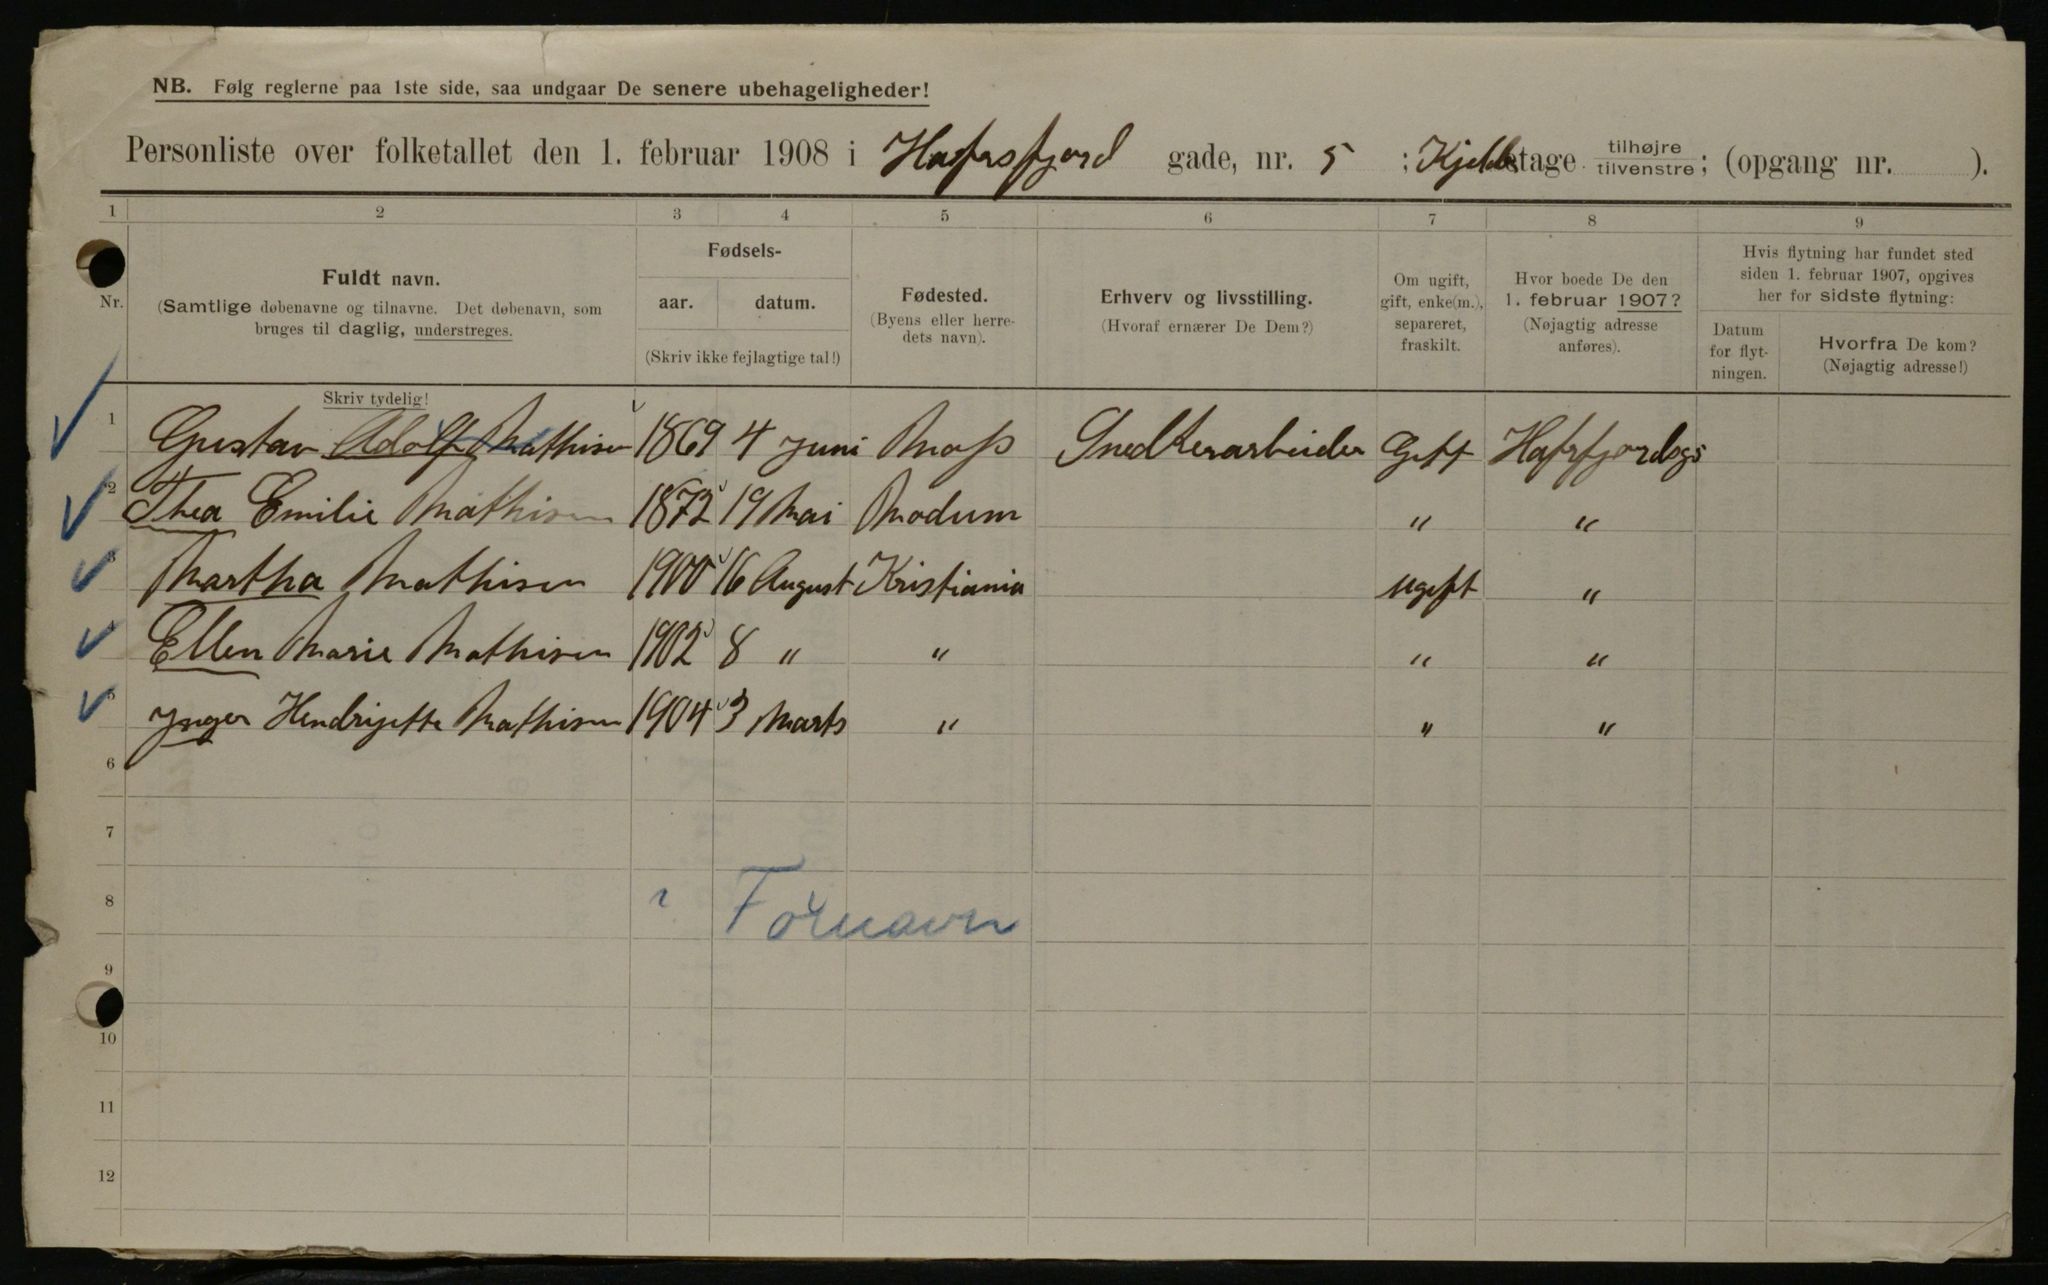 NB. Følg reglerne paa 1ste side, saa undgaar De senere ubehageligheder!
Personliste over folketallet den 1. februar 1908 i Hafrsfjord gade, nr. 5 ; Kjelderetage tilhøjre tilvenstre ; (opgang nr. ).
1 2 3 4 5 6 7 8 9
Nr.
Fuldt navn.
(Samtlige døbenavne og tilnavne. Det døbenavn, som
bruges til daglig, understreges.
Skriv tydelig!
Fødsels-
aar. datum.
(Skriv ikke fejlagtige tal!)
Fødested.
(Byens eller herre-
dets navn).
Erhverv og livsstilling.
(Hvoraf ernærer De Dem?)
Om ugift,
gift, enke(m.),
separeret,
fraskilt.
Hvor boede De den
1. februar 1907?
(Nøjagtig adresse
anføres).
Hvis flytning har fundet sted
siden 1. februar 1907, opgives
her for sidste flytning:
Datum
for flyt-
ningen.
Hvorfra De kom?
(Nøjagtig adresse!)
1 Gustav Adolf Mathisen 1869 4 Juni Moss Snedkerarbeider Gift Hafrfjordsg 5
2 Thea Emilie Mathisen 1872 19 Mai Modum " "
3 Martha Mathisen 1900 16 August Kristiania ugift "
4 Ellen Marie Mathisen 1902 8 " " " "
5 Ynger Hendrijette Mathisen 1904 3 Marts " " "
6
7
8 Fornavn
9
10
11
12